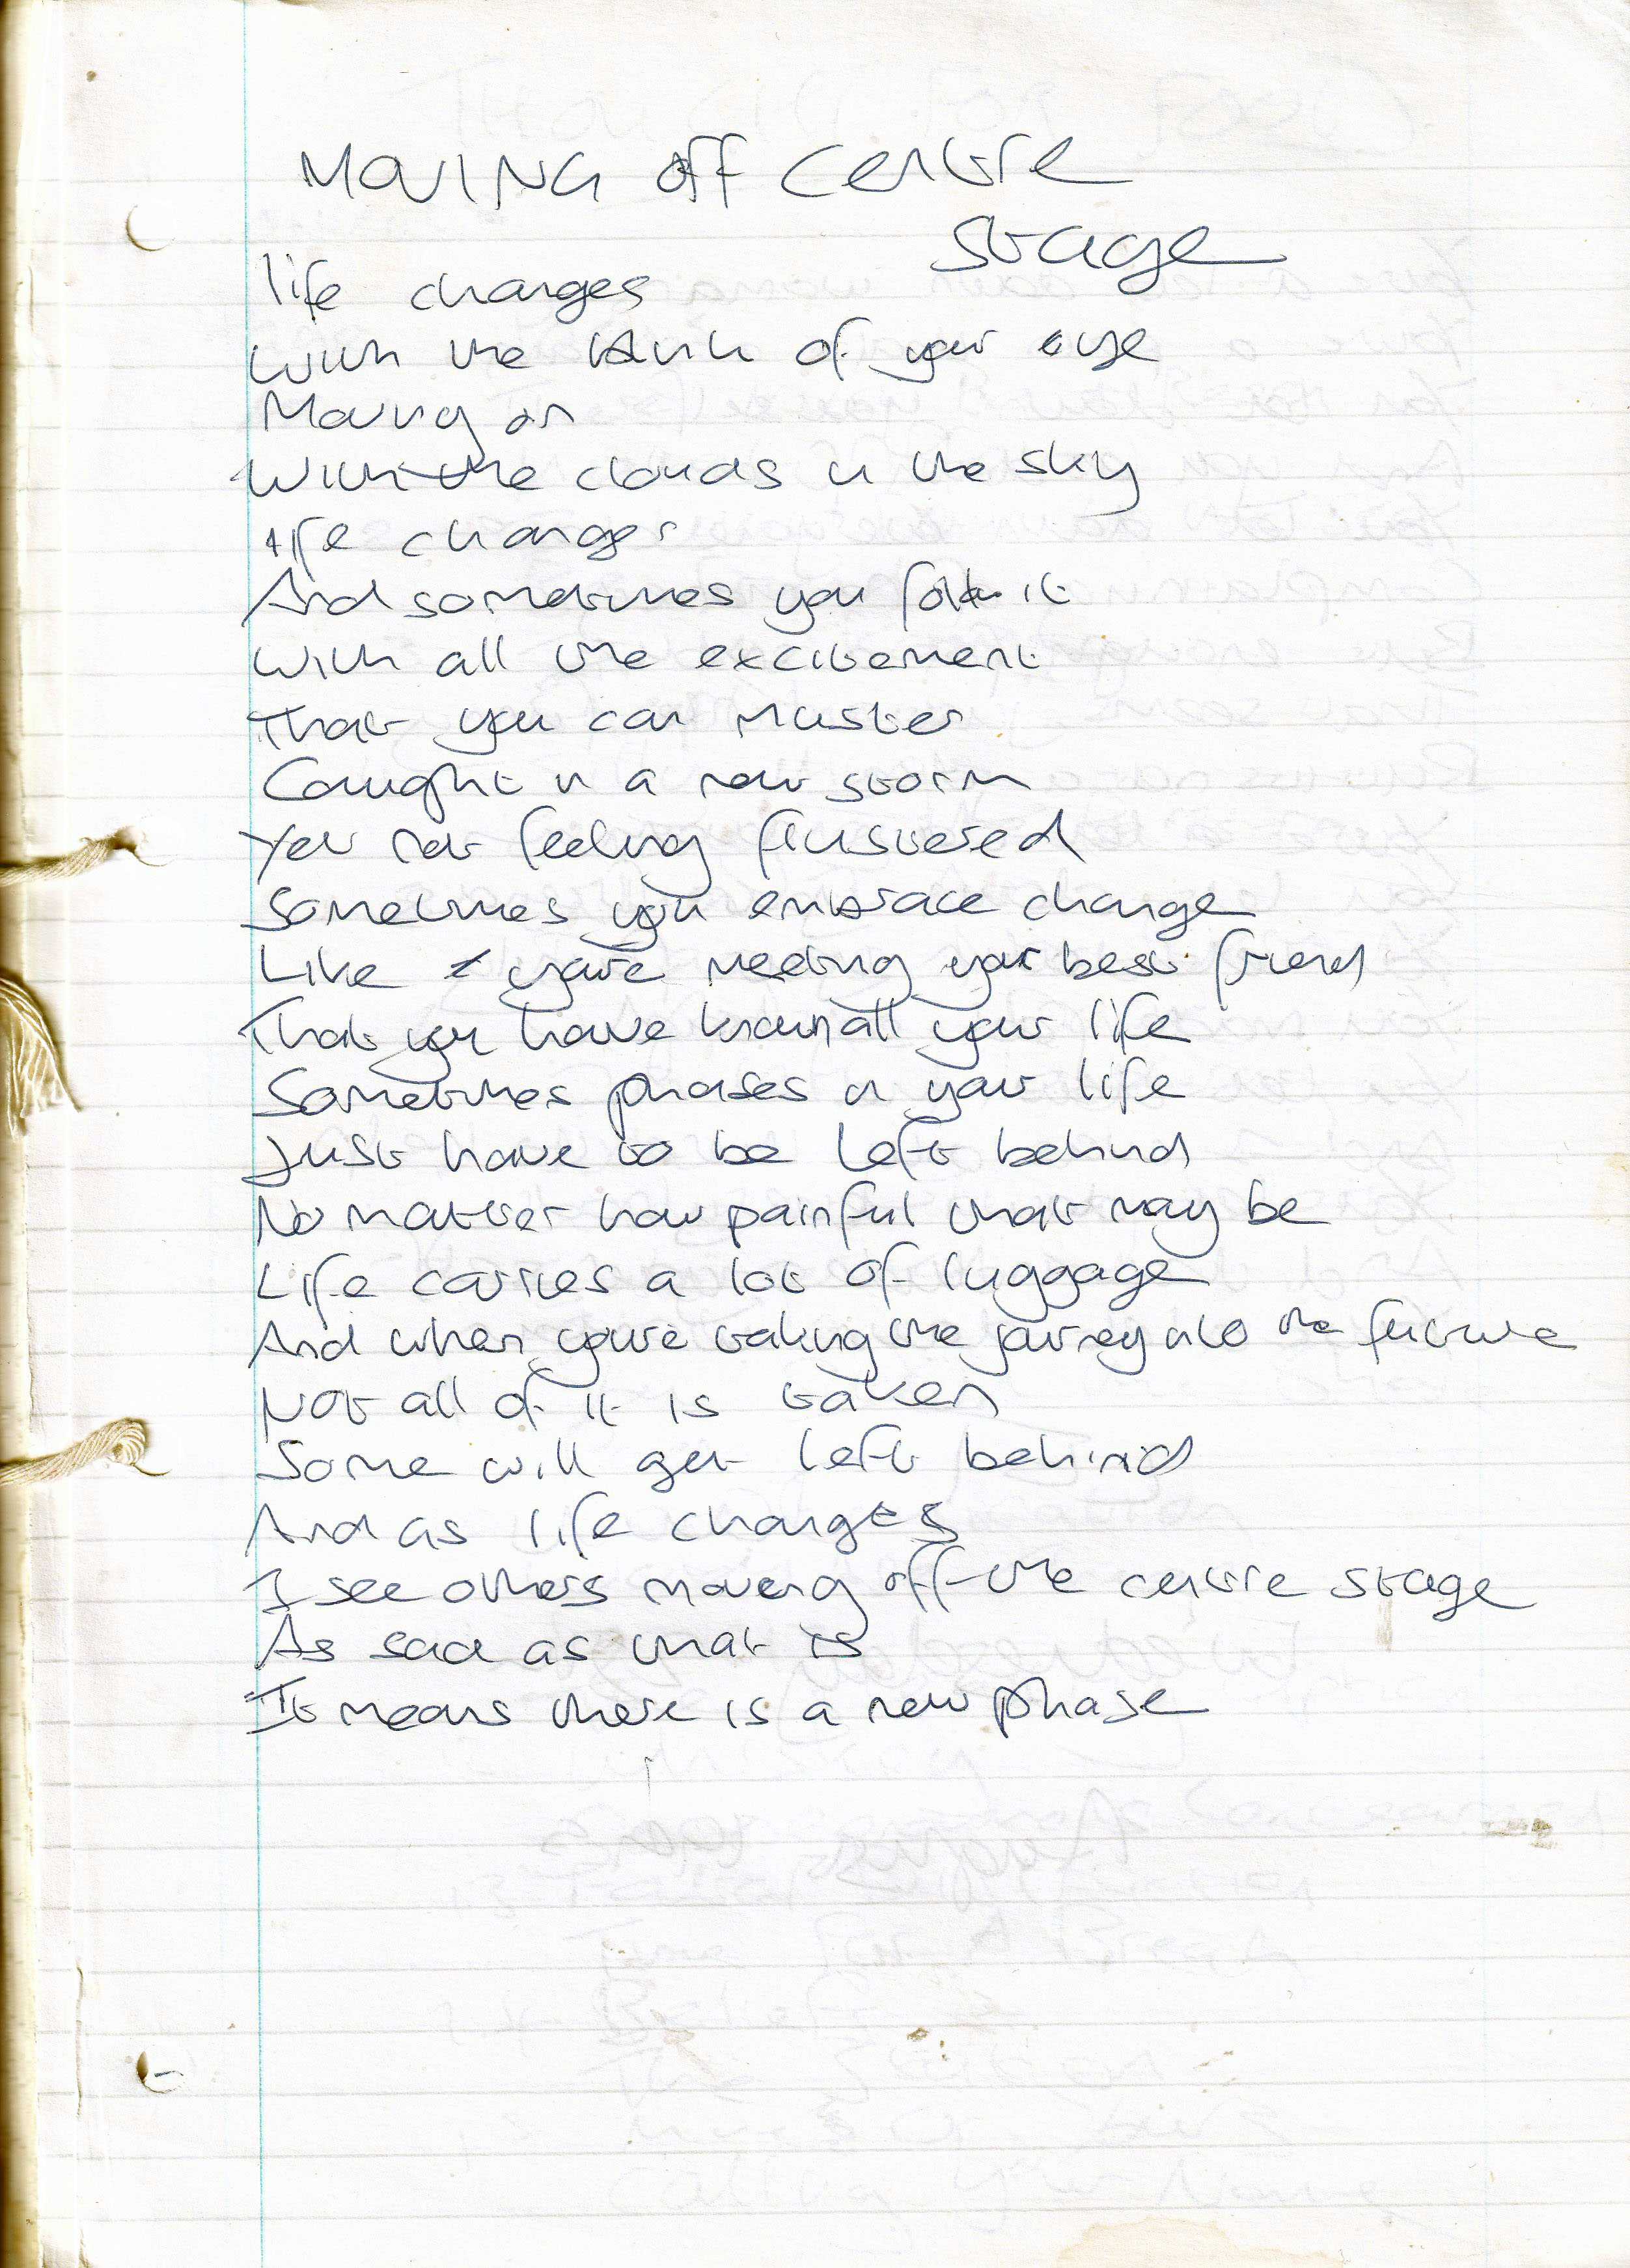 MOVING Off Centre
Stage
life changes
With the blink of your eye
Moving on
With the clouds in the sky
life changes
And sometimes you follow it
With all the excitement
That you can muster
Caught in a new storm
Yet not feeling flustered
Sometimes you embrace change
Like you're meeting your best friend
That you have known all your life
Sometimes phases in your life
Just have to be left behind
No matter how painful that may be
Life carries a lot of luggage
And when you're taking the journey into the future
Not all of it is taken
Some will get left behind
And as life changes
I see others moving off the centre stage
As sad as that is
It means there is a new phase